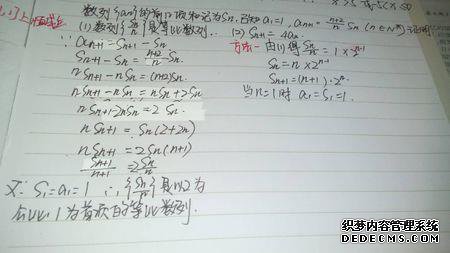 数列{an}的前n项和记为Sn.已知a₁=1, an+1=(n+2)/n Sn (n∈N*)证明:
(1)数列{Sn/n}是等比数列. (2)Sn+1=4an.
∵ an+1=Sn+1-Sn
Sn+1-Sn=(n+2)/n Sn
nSn+1-nSn=(n+2)Sn
nSn+1-nSn=nSn+2Sn
nSn+1-2nSn=2Sn
nSn+1=Sn(2+2n)
nSn+1=2Sn(n+1)
Sn+1/n+1=2Sn/n
又∵ S₁=a₁=1 ∴{Sn/n}是以2为
公比,1为首项的等比数列.
方法一 由(1)得 Sn/n=1×2ⁿ⁻¹
Sn=n×2ⁿ⁻¹
Sn+1=(n+1)·2ⁿ
当n=1时 a₁=S₁=1.
织梦内容管理系统
DEDECMS.COM